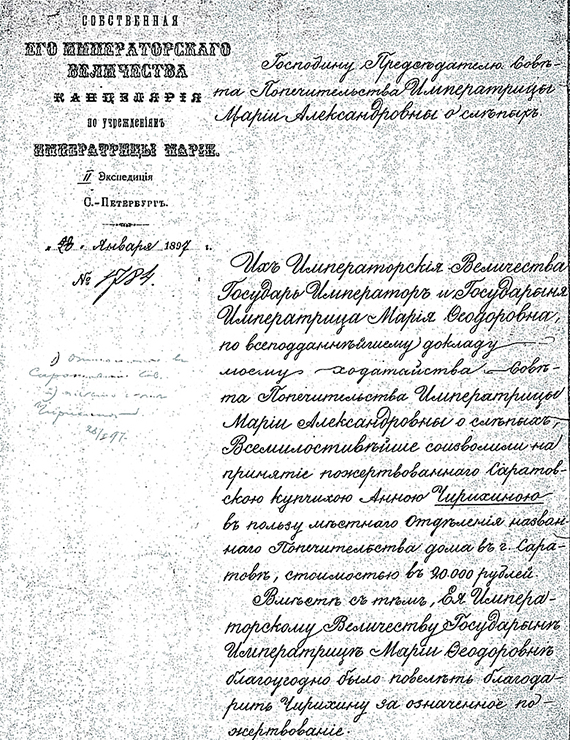 СОБСТВЕННАЯ
ЕГО ИМПЕРАТОРСКАГО
ВЕЛИЧЕСТВА
КАНЦЕЛЯРІЯ
по учрежденіямъ
ИМПЕРАТРИЦЫ МАРІИ.
II Экспедиція
С.-ПЕТЕРБУРГЪ.
Января 1897 г.
№ 1781.
1) въ
2)
Господину Предсѣдателю Совѣ-
та Попечительства Императрицы
Маріи Александровны о слѣпыхъ.
Ихъ Императорскія Величества
Государь Императоръ и Государыня
Императрица Марія Ѳеодоровна,
по всеподданнѣйшему докладу
моему ходатайства Совѣ-
та Попечительства Императрицы
Маріи Александровны о слѣпыхъ,
Всемилостивѣйше соизволили на
принятіе пожертвованнаго Саратов-
скою купчихою Анною Чирихиною
въ пользу мѣстнаго Отдѣленія назван-
наго Попечительства дома въ г. Сара-
товѣ, стоимостью въ 20.000 рублей.
Вмѣстѣ съ тѣмъ, Ея Импера-
торскому Величеству Государынѣ
Императрицѣ Маріи Ѳеодоровнѣ
благоугодно было повелѣть благода-
рить Чирихину за означенное по-
жертвованіе.